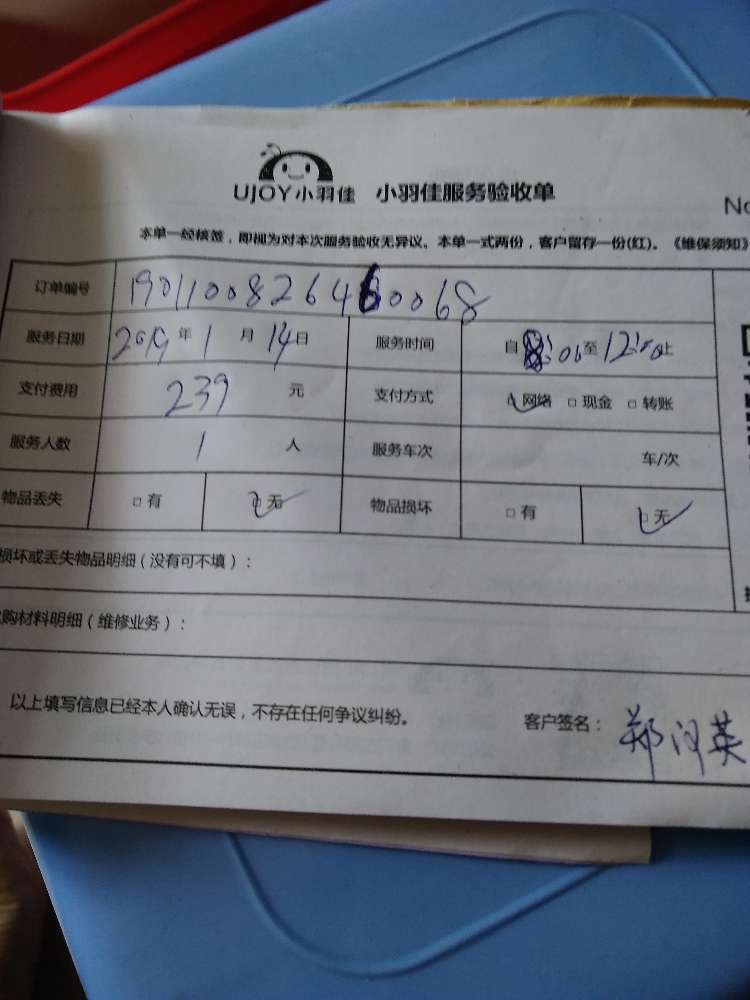 UJOY小羽佳 小羽佳服务验收单
No
本单一经核签，即视为对本次服务验收无异议。本单一式两份，客户留存一份(红)。《维保须知》
订单编号 1901100826460068
服务日期 2019年 1 月 14日 服务时间 自 8:00至 12:00止
支付费用 239 元 支付方式 网络 □ 现金 □ 转账
服务人数 1 人 服务车次 车/次
物品丢失 □ 有 □ 无 物品损坏 □ 有 □ 无
损坏或丢失物品明细（没有可不填）：
购材料明细（维修业务）：
以上填写信息已经本人确认无误，不存在任何争议纠纷。 客户签名：郑闪英